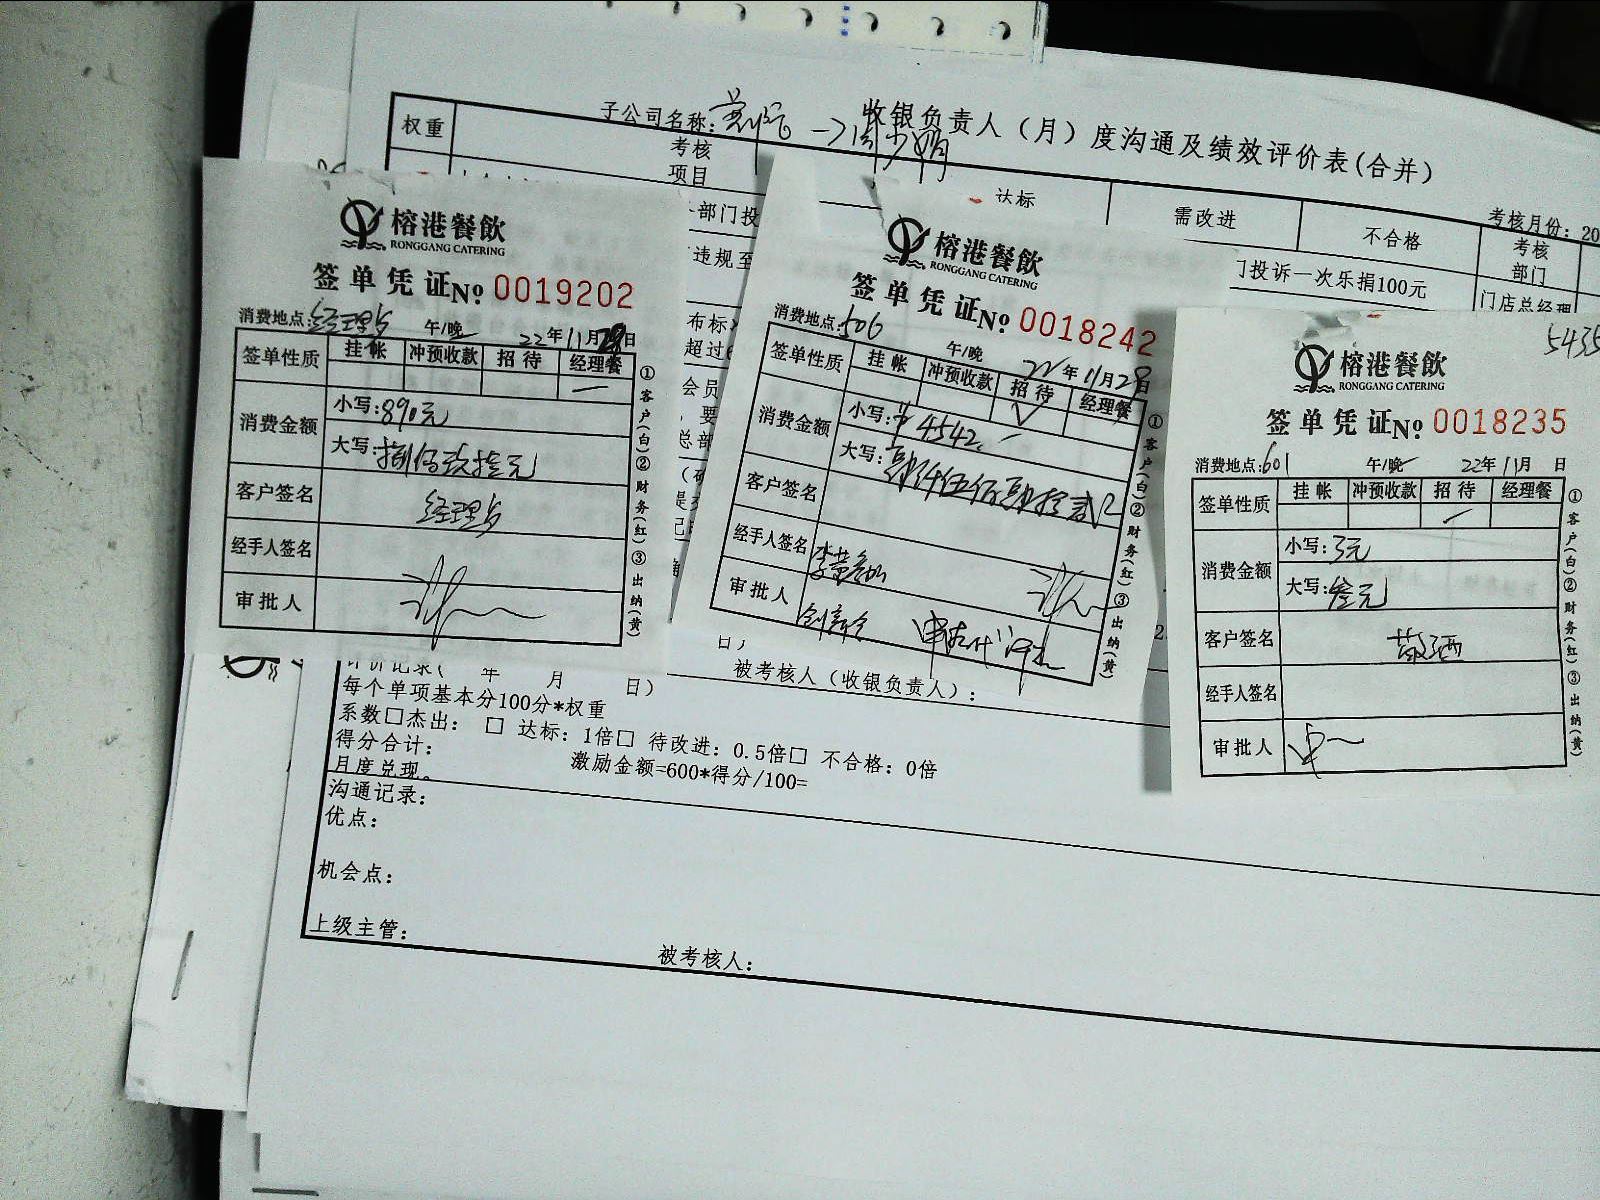 收银负责人(月)度沟通及绩效评价表(合并)
子公司名称:
考核月份:20
权重
考核
项目
达标
需改进
不合格
考核
部门
部门投
违规至
门投诉一次乐捐100元
门店总经理
布标
超过
会员
要
总部
榕港餐飲
RONGGANG CATERING
签单凭证№ 0019202
消费地点:经理房 午/晚 22年11月28日
签单性质 挂帐 冲预收款 招待 经理餐
消费金额
小写:890元
大写:捌佰玖拾元
客户签名 经理房
经手人签名
审批人
①客户(白)②财务(红)③出纳(黄)
榕港餐飲
RONGGANG CATERING
签单凭证№ 0018242
消费地点:506 午/晚 22年11月28日
签单性质 挂帐 冲预收款 招待 经理餐
消费金额
小写:¥4542
大写:肆仟伍佰肆拾贰元
客户签名
经手人签名
审批人
①客户(白)②财务(红)③出纳(黄)
5435
榕港餐飲
RONGGANG CATERING
签单凭证№ 0018235
消费地点:601 午/晚 22年11月 日
签单性质 挂帐 冲预收款 招待 经理餐
消费金额
小写:3元
大写:叁元
客户签名 散酒
经手人签名
审批人
①客户(白)②财务(红)③出纳(黄)
日)
被考核人(收银负责人):
评价记录( 年 月 日)
每个单项基本分100分*权重
系数□杰出: □ 达标:1倍□ 待改进:0.5倍□ 不合格:0倍
得分合计: 激励金额=600*得分/100=
月度兑现。
沟通记录:
优点:
机会点:
上级主管:
被考核人: